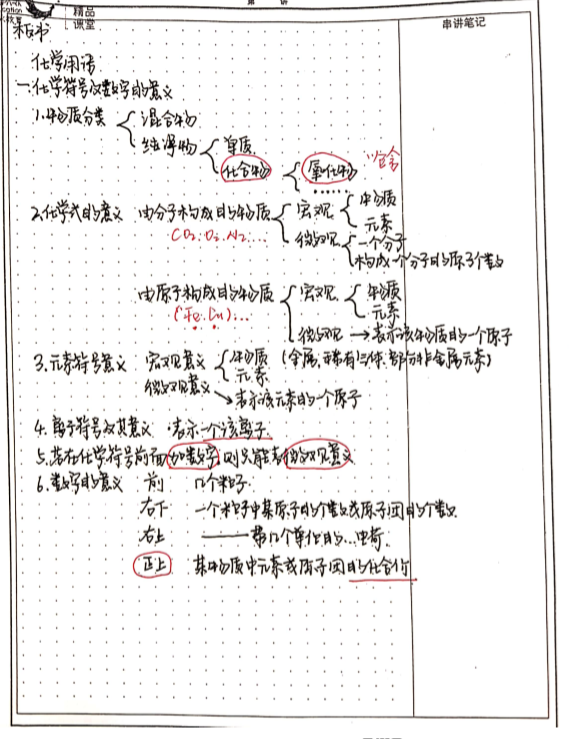 精品
课堂
第 讲
串讲笔记
板书
化学用语
一.化学符号及数字的意义
1.物质分类 混合物
纯净物 单质
化合物 氧化物 包含
......
2.化学式的意义 由分子构成的物质 宏观 物质
元素
CO₂.O₂.N₂... 微观 一个分子
构成一个分子的原子个数
由原子构成的物质 宏观 物质
元素
(Fe.Cu)... 微观 →表示该物质的一个原子
3.元素符号意义 宏观意义 物质 (金属、稀有气体、部分非金属元素)
元素
微观意义 表示该元素的一个原子
4.离子符号及其意义 ·表示一个该离子.
5.若在化学符号前面加数字,则只能表微观意义
6.数字的意义 前 几个粒子
右下 一个粒子中某原子的个数或原子团的个数
右上 —— 带几个单位的...电荷.
正上 某物质中元素或原子团的化合价